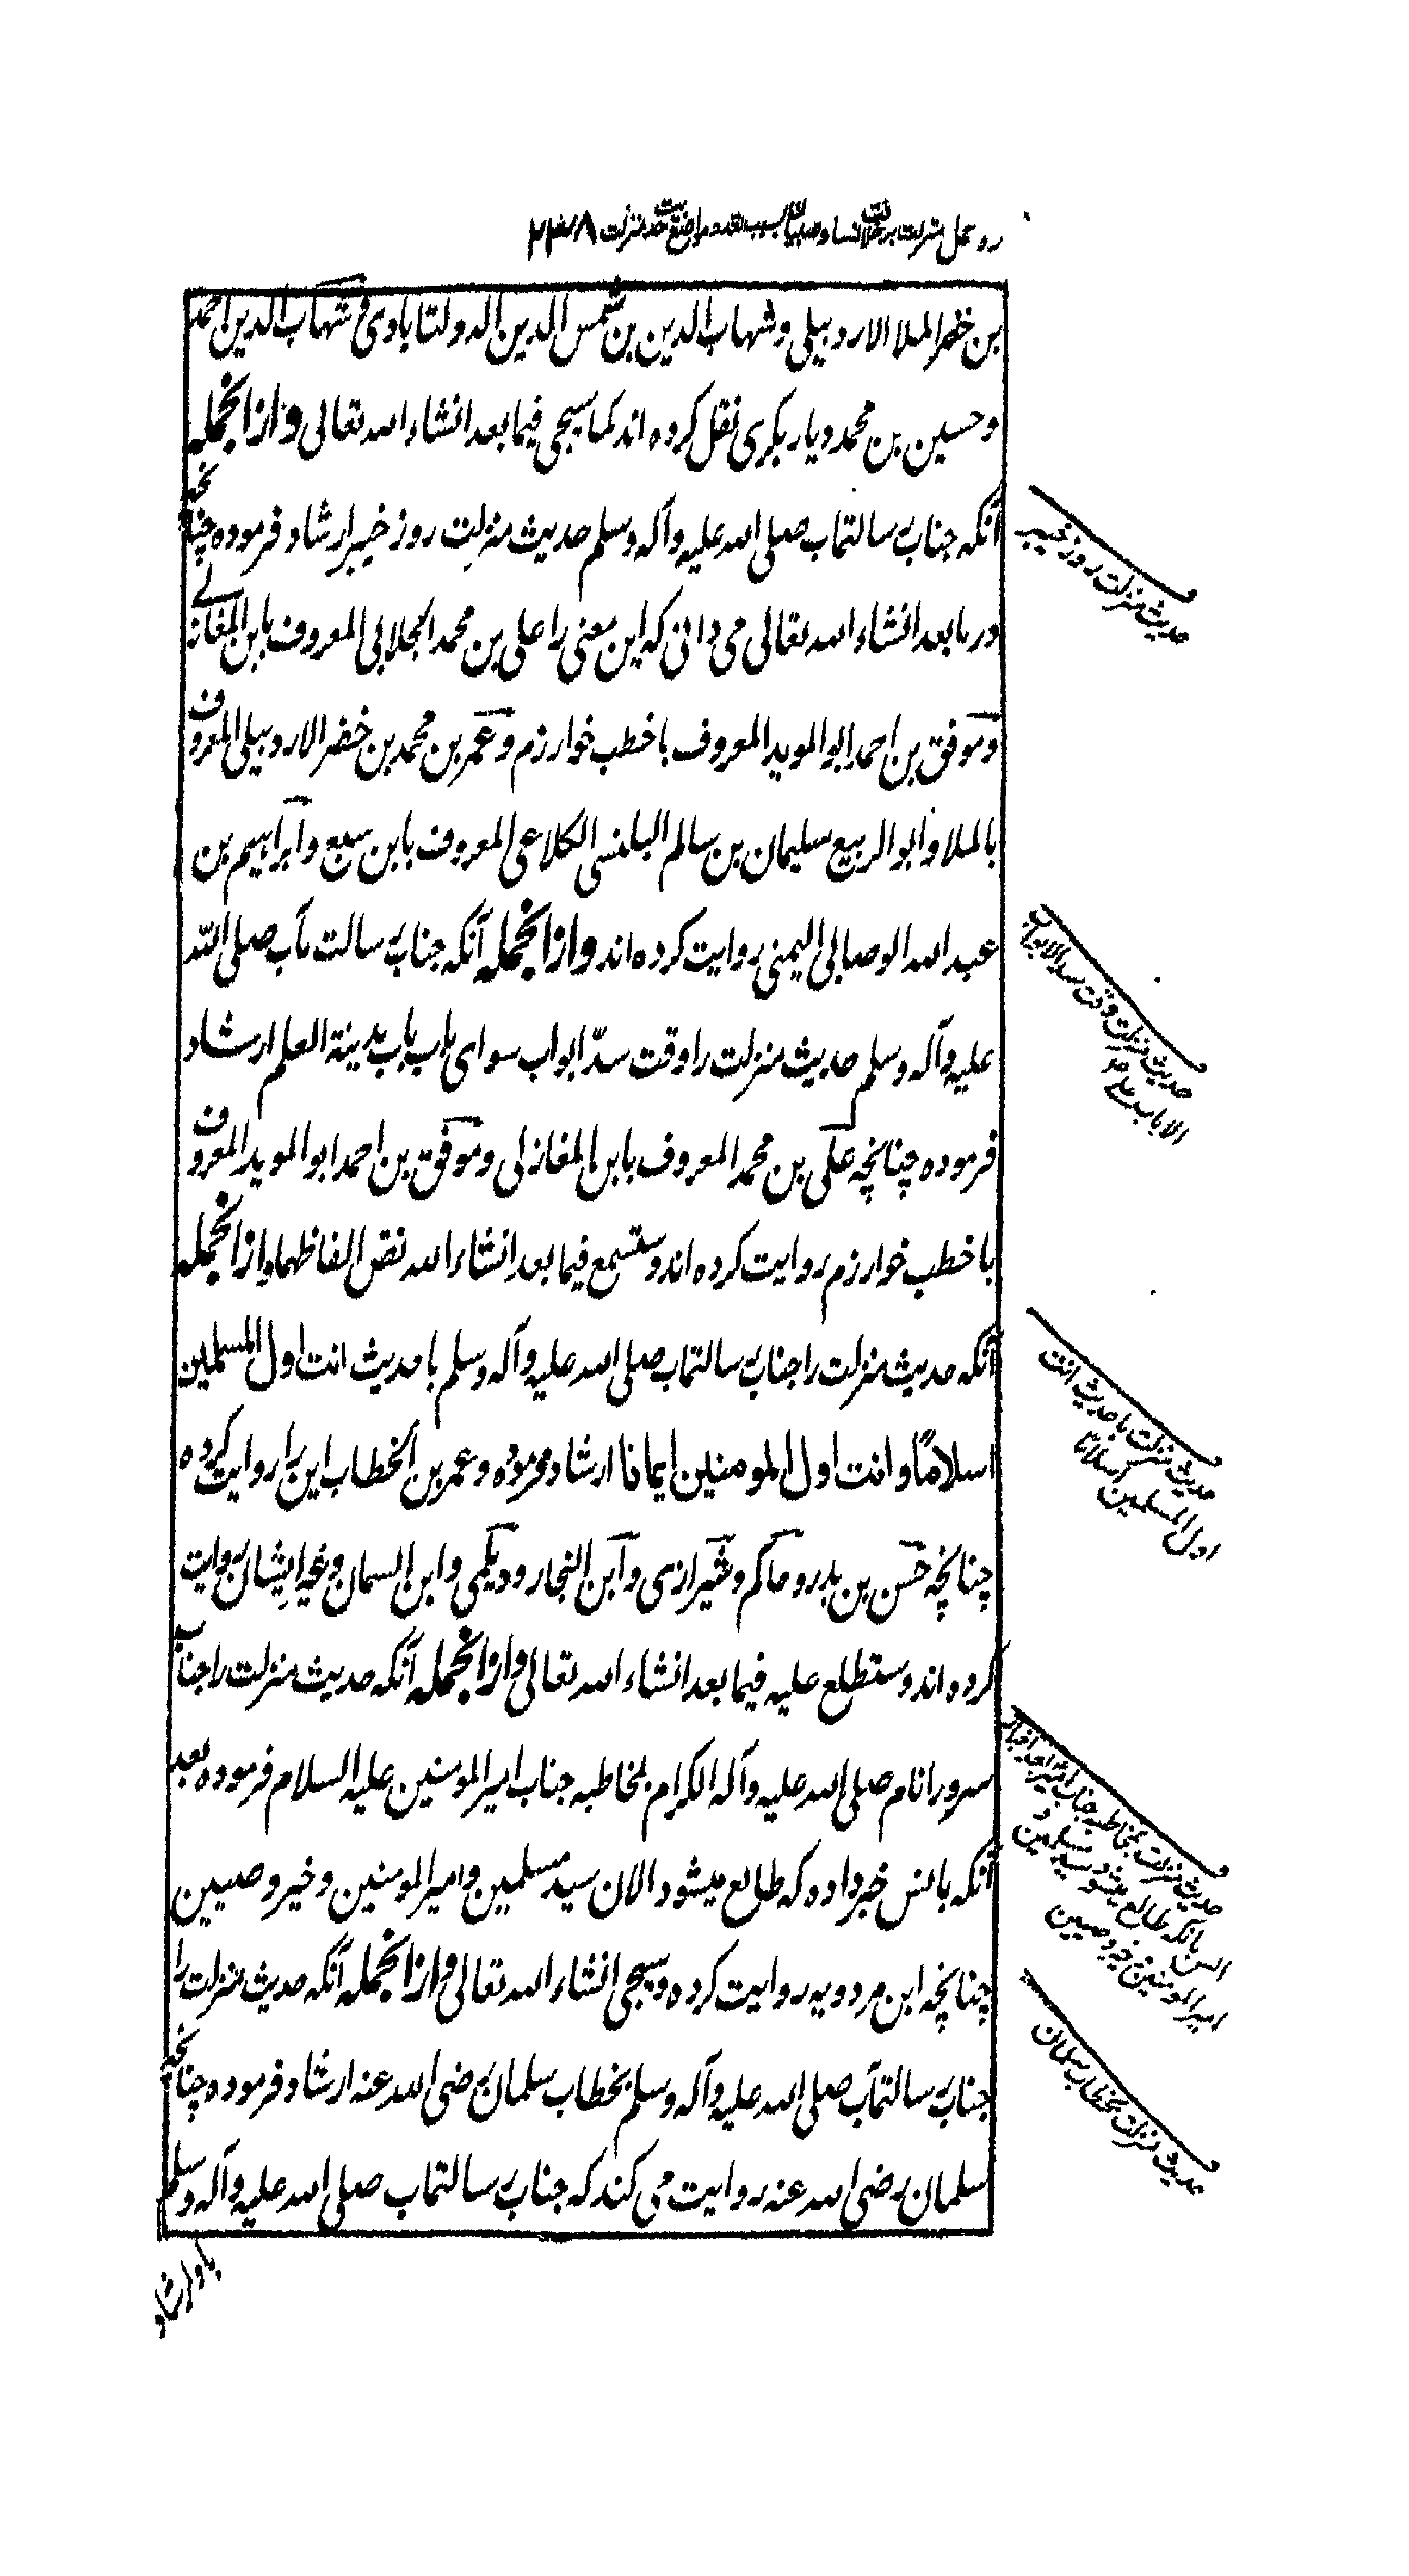 رد حمل منزلت بر خلافت نساء و صبیان بسبب تعدد مواضع حدیث منزلت ۲۳۸
بن خضر الملا الاردبیلی و شهاب الدین بن شمس الدین الدولتابادی و شهاب الدین احمد
و حسین بن محمد دیاربکری نقل کرده اند کما سیجی فیما بعد انشاء الله تعالی و ازانجمله
آنکه جناب رسالتماب صلی الله علیه و آله و سلم حدیث منزلت روز خیبر ارشاد فرموده چنانچه
در ما بعد انشاء الله تعالی می دانی که این معنی را علی بن محمد الجلابی المعروف بابن المغازلی
و موفق بن احمد ابو الموید المعروف باخطب خوارزم و عمر بن محمد بن خضر الاردبیلی المعروف
بالملا و ابو الربیع سلیمان بن سالم البلنسی الکلاعی المعروف بابن سبع و ابراهیم بن
عبد الله الوصابی الیمنی روایت کرده اند و ازانجمله آنکه جناب رسالت مآب صلی الله
علیه و آله و سلم حدیث منزلت را وقت سدّ ابواب سوای باب باب مدینة العلم ارشاد
فرموده چنانچه علی بن محمد المعروف بابن المغازلی و موفق بن احمد ابو الموید المعروف
باخطب خوارزم روایت کرده اند و ستسمع فیما بعد انشاء الله نقص الفاظهما و ازانجمله
آنکه حدیث منزلت را جناب رسالتماب صلی الله علیه و آله و سلم با حدیث انت اول المسلمین
اسلاماً و انت اول المومنین ایمانا ارشاد فرموده و عمر بن الخطاب این را روایت کرده
چنانچه حسن بن بدر و حاکم و شیرازی و ابن النجار و دیلمی و ابن السمان و غیر ایشان روایت
کرده اند و ستطلع علیه فیما بعد انشاء الله تعالی و ازانجمله آنکه حدیث منزلت را جناب
سرور انام صلی الله علیه و آله الکرام بمخاطبه جناب امیر المومنین علیه السلام فرموده بعد
آنکه بانس خبر داده که طالع میشود الان سید مسلمین و امیر المومنین و خیر وصیین
چنانچه ابن مردویه روایت کرده و سیجی انشاء الله تعالی و ازانجمله آنکه حدیث منزلت را
جناب رسالتمآب صلی الله علیه و آله و سلم بخطاب سلمان رضی الله عنه ارشاد فرموده چنانچه
سلمان رضی الله عنه روایت می کند که جناب رسالتماب صلی الله علیه و آله و سلم
باو ارشاد
حدیث منزلت روز خیبر
حدیث منزلت وقت سد الابواب
الا باب علی
حدیث منزلت با حدیث انت
اول المسلمین اسلاما
حدیث منزلت بمخاطبه جناب امیر بعد اخبار
انس بانکه طالع میشود سید مسلمین و
امیر المومنین و خیر وصیین
حدیث منزلت بخطاب سلمان